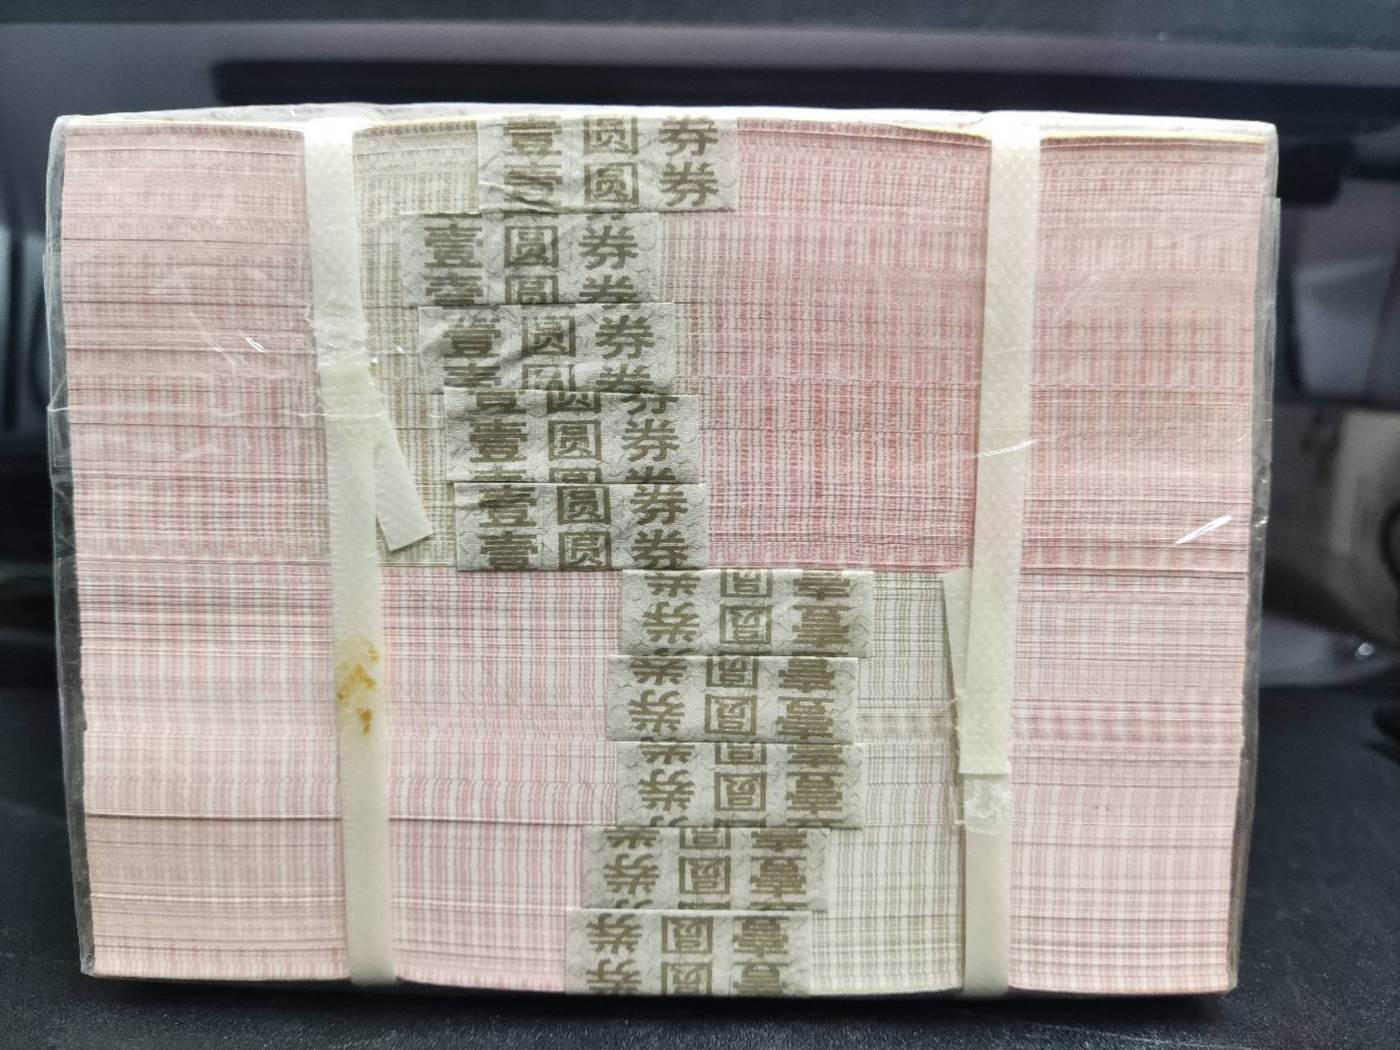 壹圆券
壹圆券
壹圆券
壹圆券
壹圆券
壹圆券
壹圆券
壹圆券
壹圆券
壹圆券
壹圆券
壹圆券
壹圆券
壹圆券
壹圆券
壹圆券
壹圆券
壹圆券
壹圆券
壹圆券